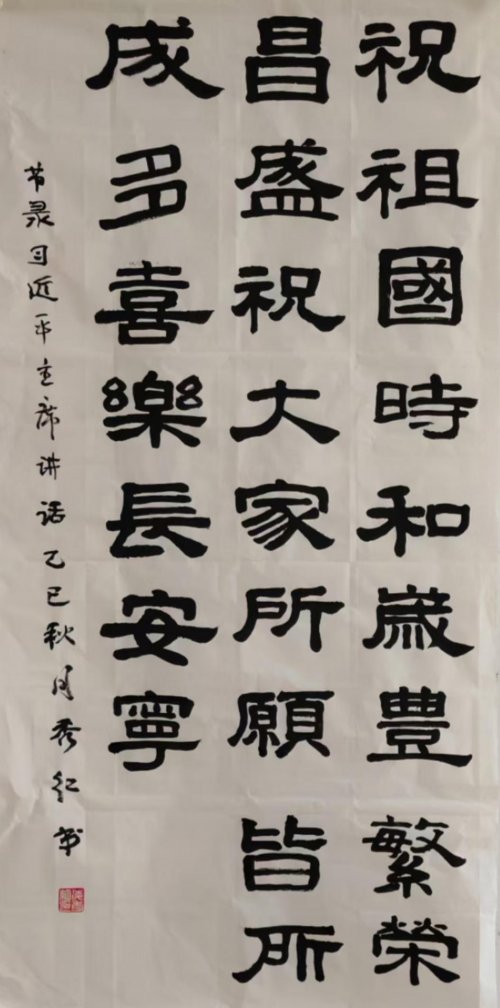 祝祖國時和歲豐繁榮
昌盛祝大家所願皆所
成多喜樂長安寧
节录习近平主席讲话乙巳秋月秀红书